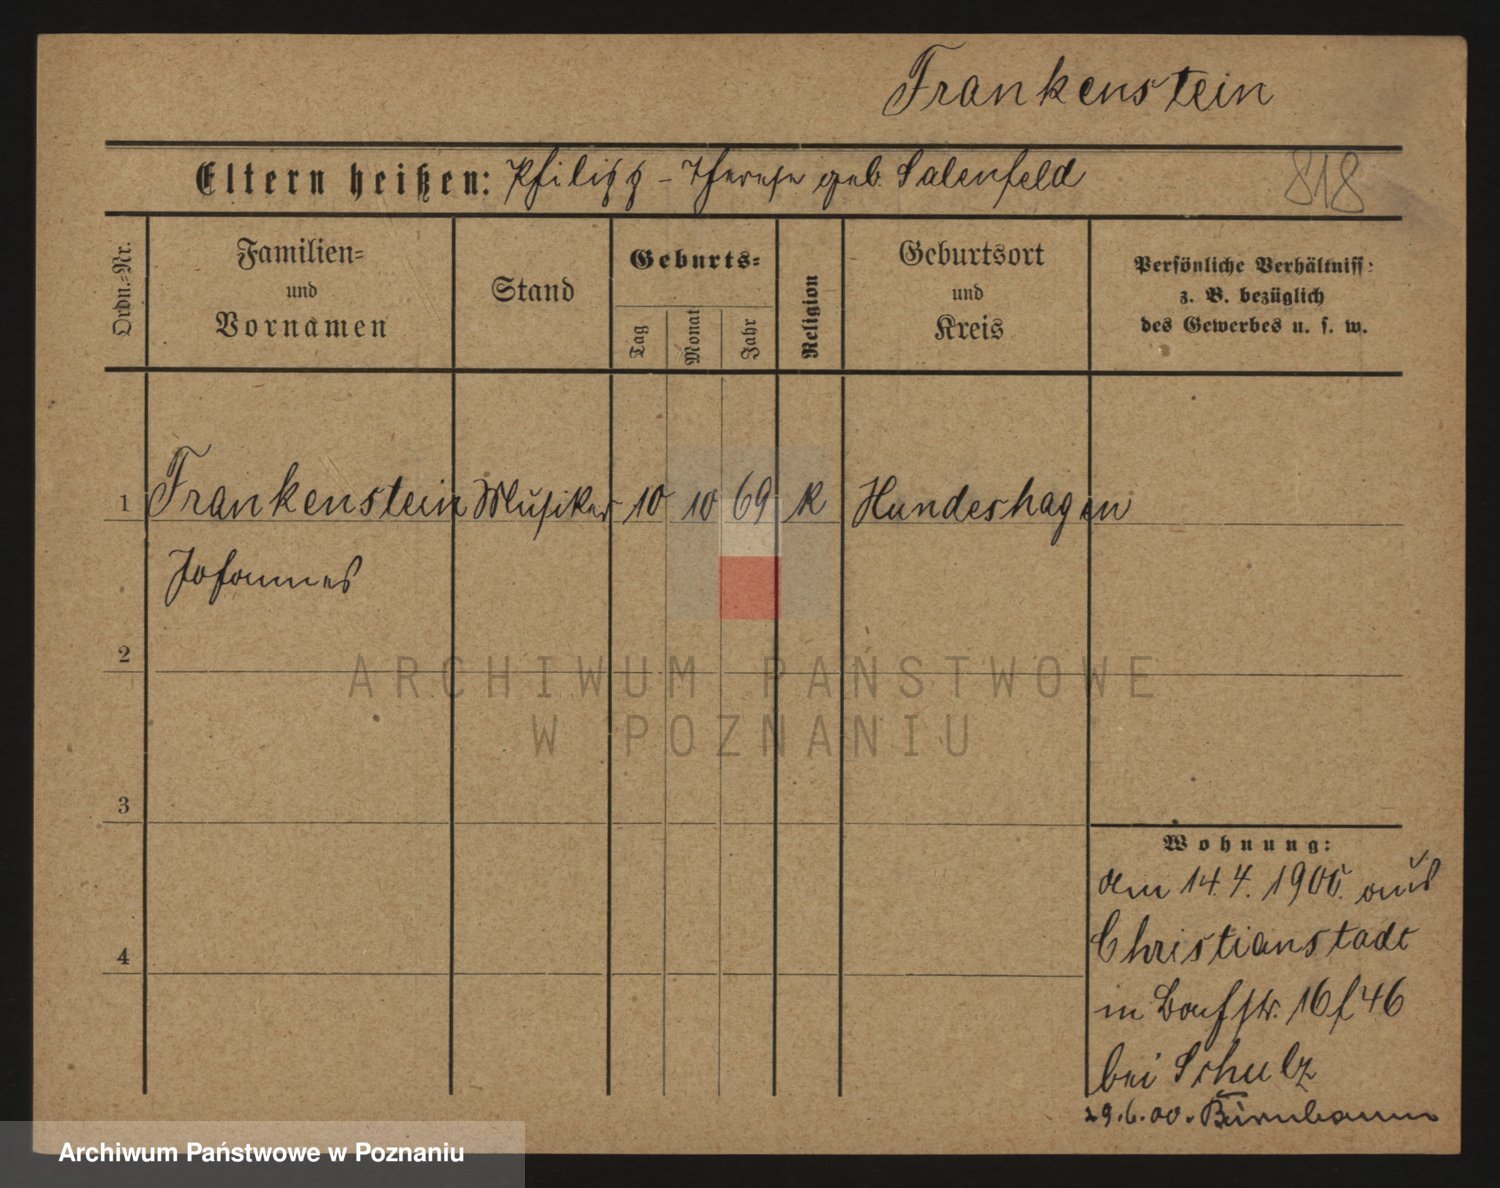 Frankenstein
Eltern heißen: Philipp - Therese geb. Salenfeld
818
Ordn.=Nr.
Familien=
und
Vornamen
Stand
Geburts=
Tag
Monat
Jahr
Religion
Geburtsort
und
Kreis
Persönliche Verhältniss:
z. B. bezüglich
des Gewerbes u. s. w.
1 Frankenstein Musiker 10 10 69 k Hundeshagen
Johannes
2
3
4
ARCHIWUM PAŃSTWOWE
W POZNANIU
Wohnung:
den 14.4. 1900. aus
Christianstadt
in Bachstr. 16/46
bei Schulz
29.6.00. Birnbaum
Archiwum Państwowe w Poznaniu